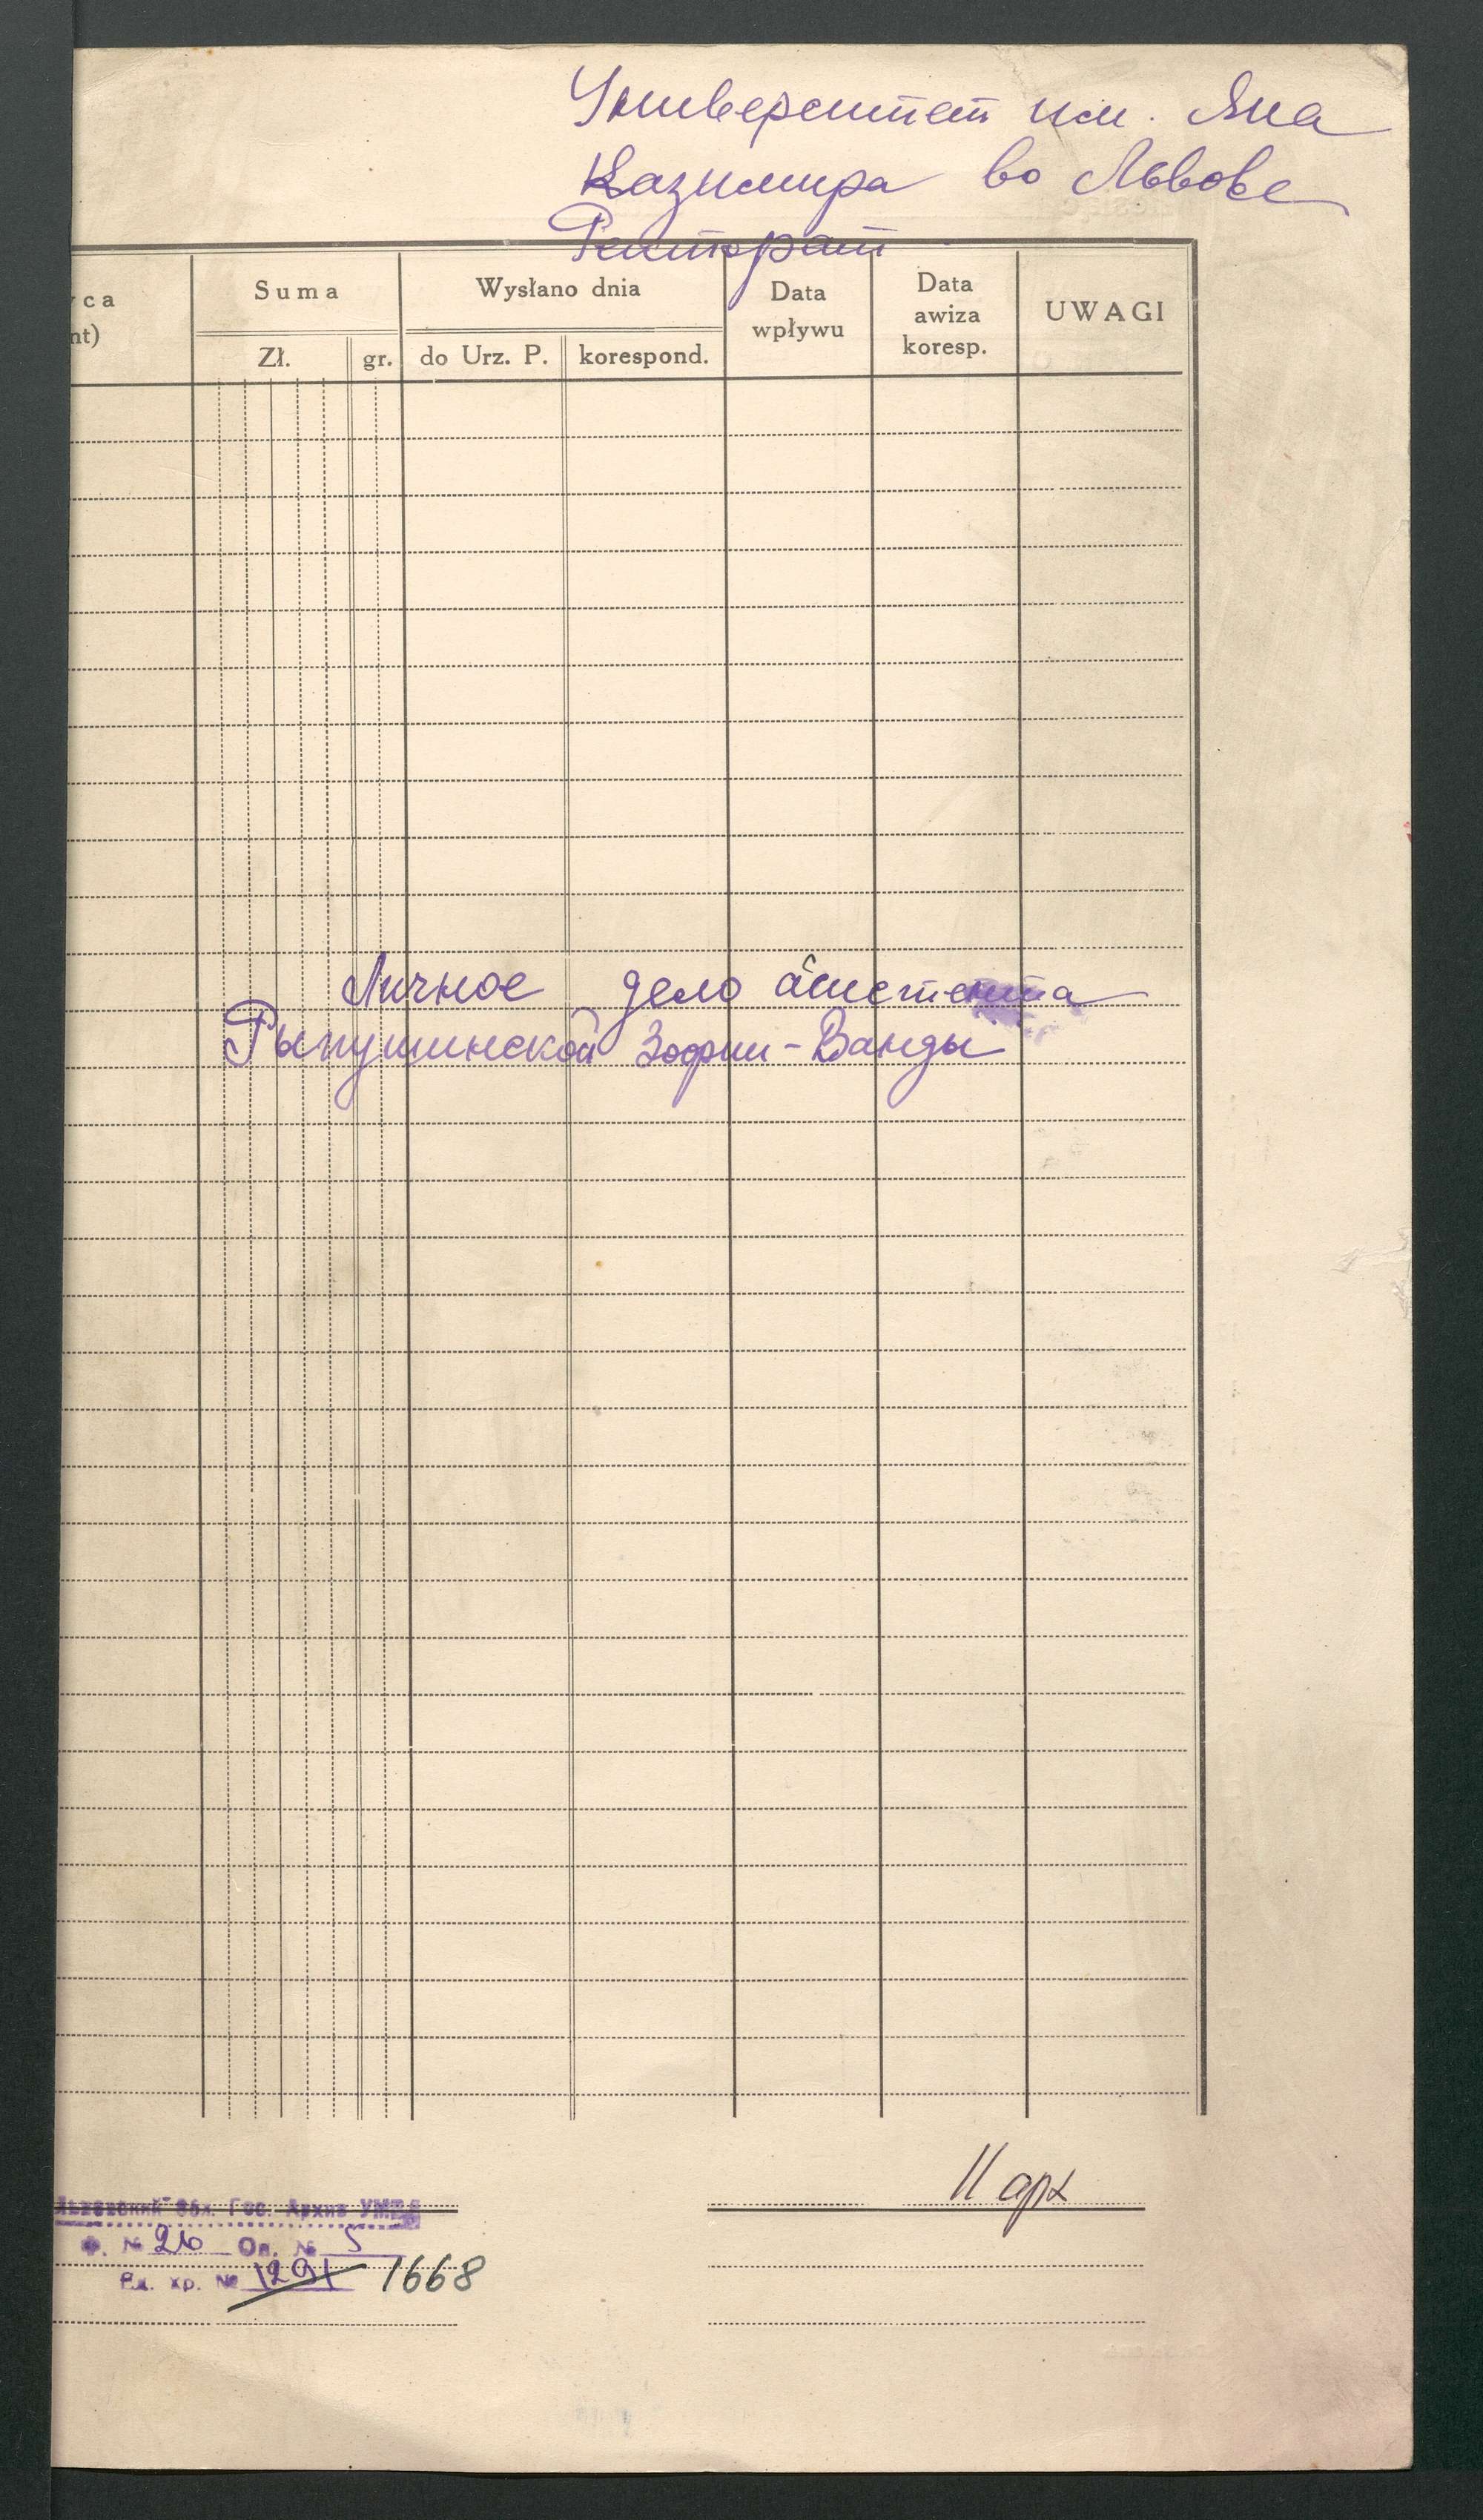 Университет им. Яна
Казимира во Львове
Ректорат
yca
nt)
Suma
Zł.
gr.
Wysłano dnia
do Urz. P.
korespond.
Data
wpływu
Data
awiza
koresp.
UWAGI
Личное дело асистента
Рыпушинской Зофии-Ванды
11 арк
Львовский Обл. Гос. Архив УМВД
Ф. № 26 Оп. № 5
Ед. хр. № 1291 1668